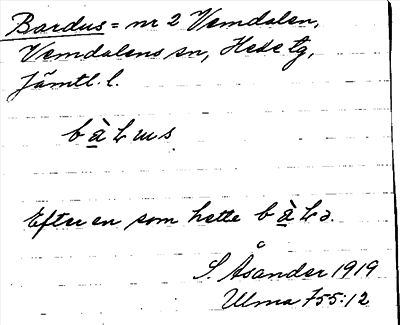 Bardus = nr 2 Vemdalen,
Vemdalens sn, Hede tg,
Jämtl. l.
Efter en som hette
S. Åsander 1919
Ulma 755:12